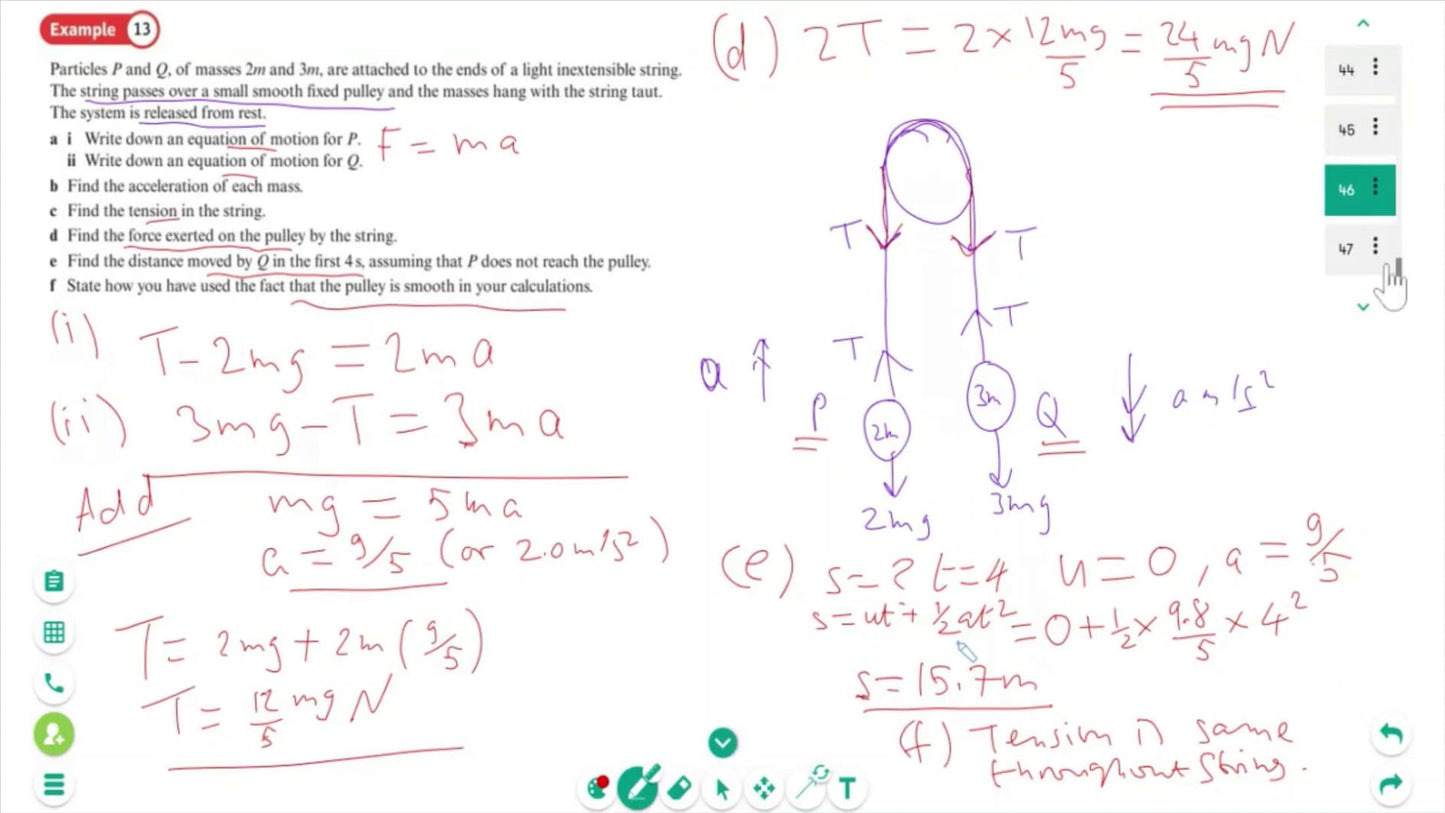 Example 13
Particles P and Q, of masses 2m and 3m, are attached to the ends of a light inextensible string.
The string passes over a small smooth fixed pulley and the masses hang with the string taut.
The system is released from rest.
a i Write down an equation of motion for P.
ii Write down an equation of motion for Q.
F = ma
b Find the acceleration of each mass.
c Find the tension in the string.
d Find the force exerted on the pulley by the string.
e Find the distance moved by Q in the first 4 s, assuming that P does not reach the pulley.
f State how you have used the fact that the pulley is smooth in your calculations.
(i) T-2mg = 2ma
(ii) 3mg-T = 3ma
Add mg = 5ma
a = g/5 (or 2.0m/s²)
T = 2mg + 2m(g/5)
T = 12/5 mg N
(d) 2T = 2 × 12mg/5 = 24/5 mg N
T T
T T
a P 2m 3m Q a m/s²
2mg 3mg
(e) s=? t=4 u=0, a=g/5
s=ut+½at² = 0+½×9.8/5×4²
s=15.7m
(f) Tension is same
throughout string.
44
45
46
47
T